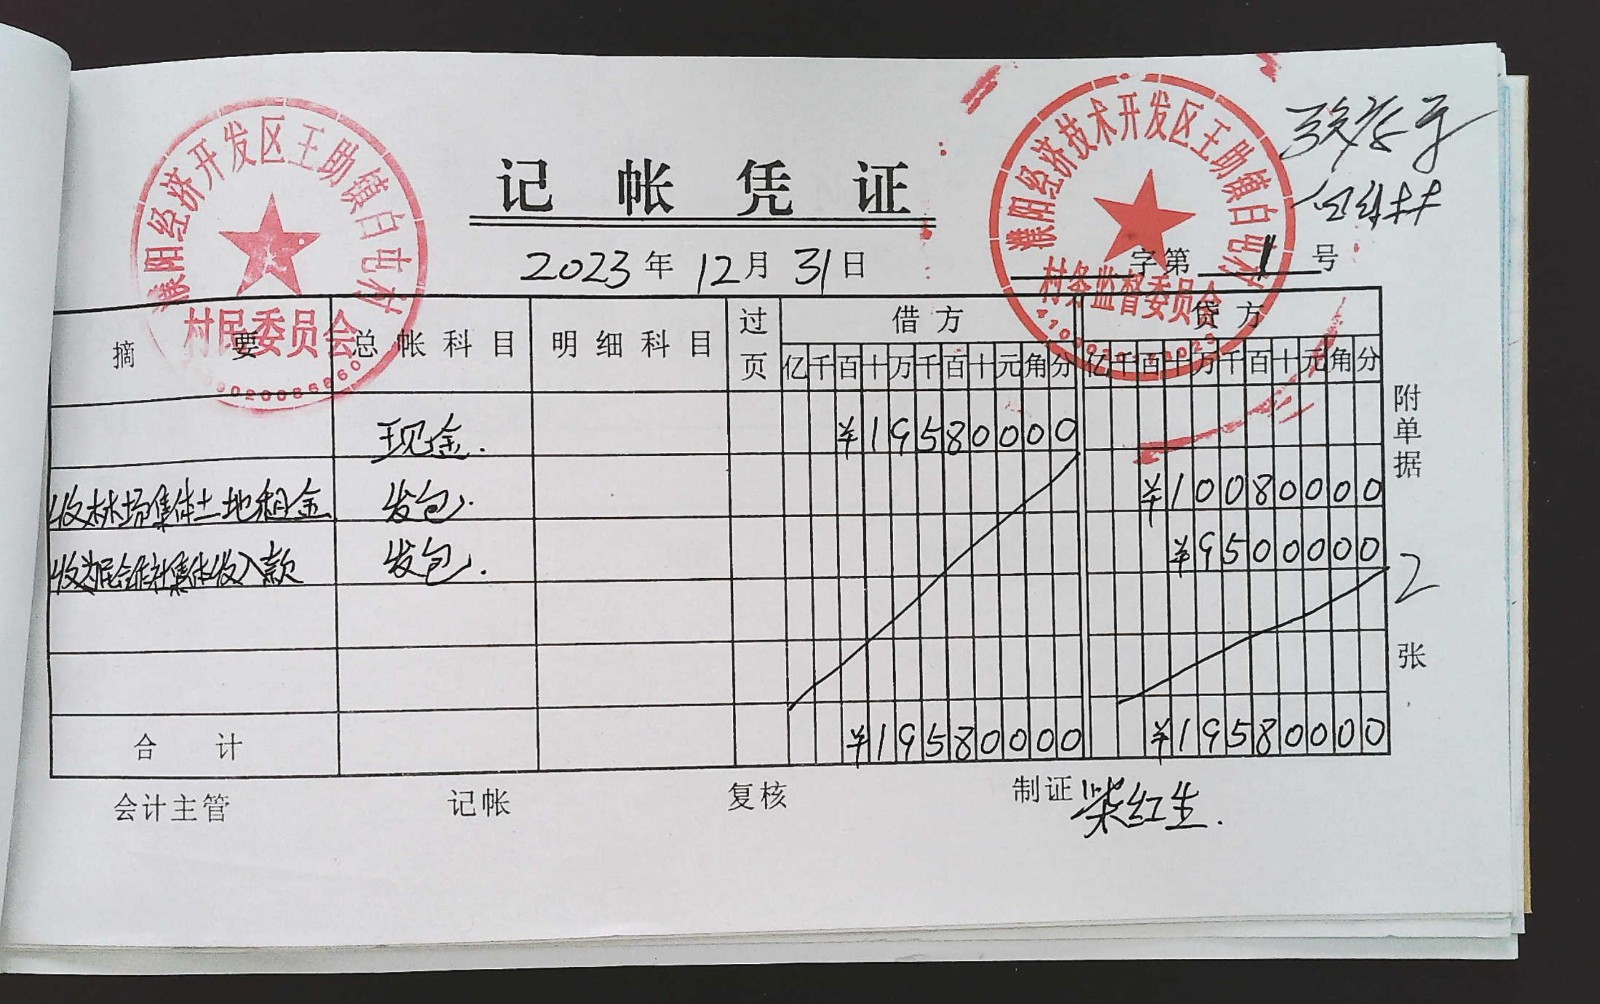 濮阳经济开发区王助镇白屯村
村民委员会
濮阳经济技术开发区王助镇白屯村
村务监督委员会
记帐凭证
2023年12月31日
字第 1 号
摘要 总帐科目 明细科目 过页 借方 贷方
亿千百十万千百十元角分 亿千百十万千百十元角分
现金. ¥19580000
收林场集体土地租金 发包. ¥10080000
集体收入款 发包. ¥9500000
合计 ¥19580000 ¥19580000
附单据 2 张
会计主管 记帐 复核 制证 柴红生.